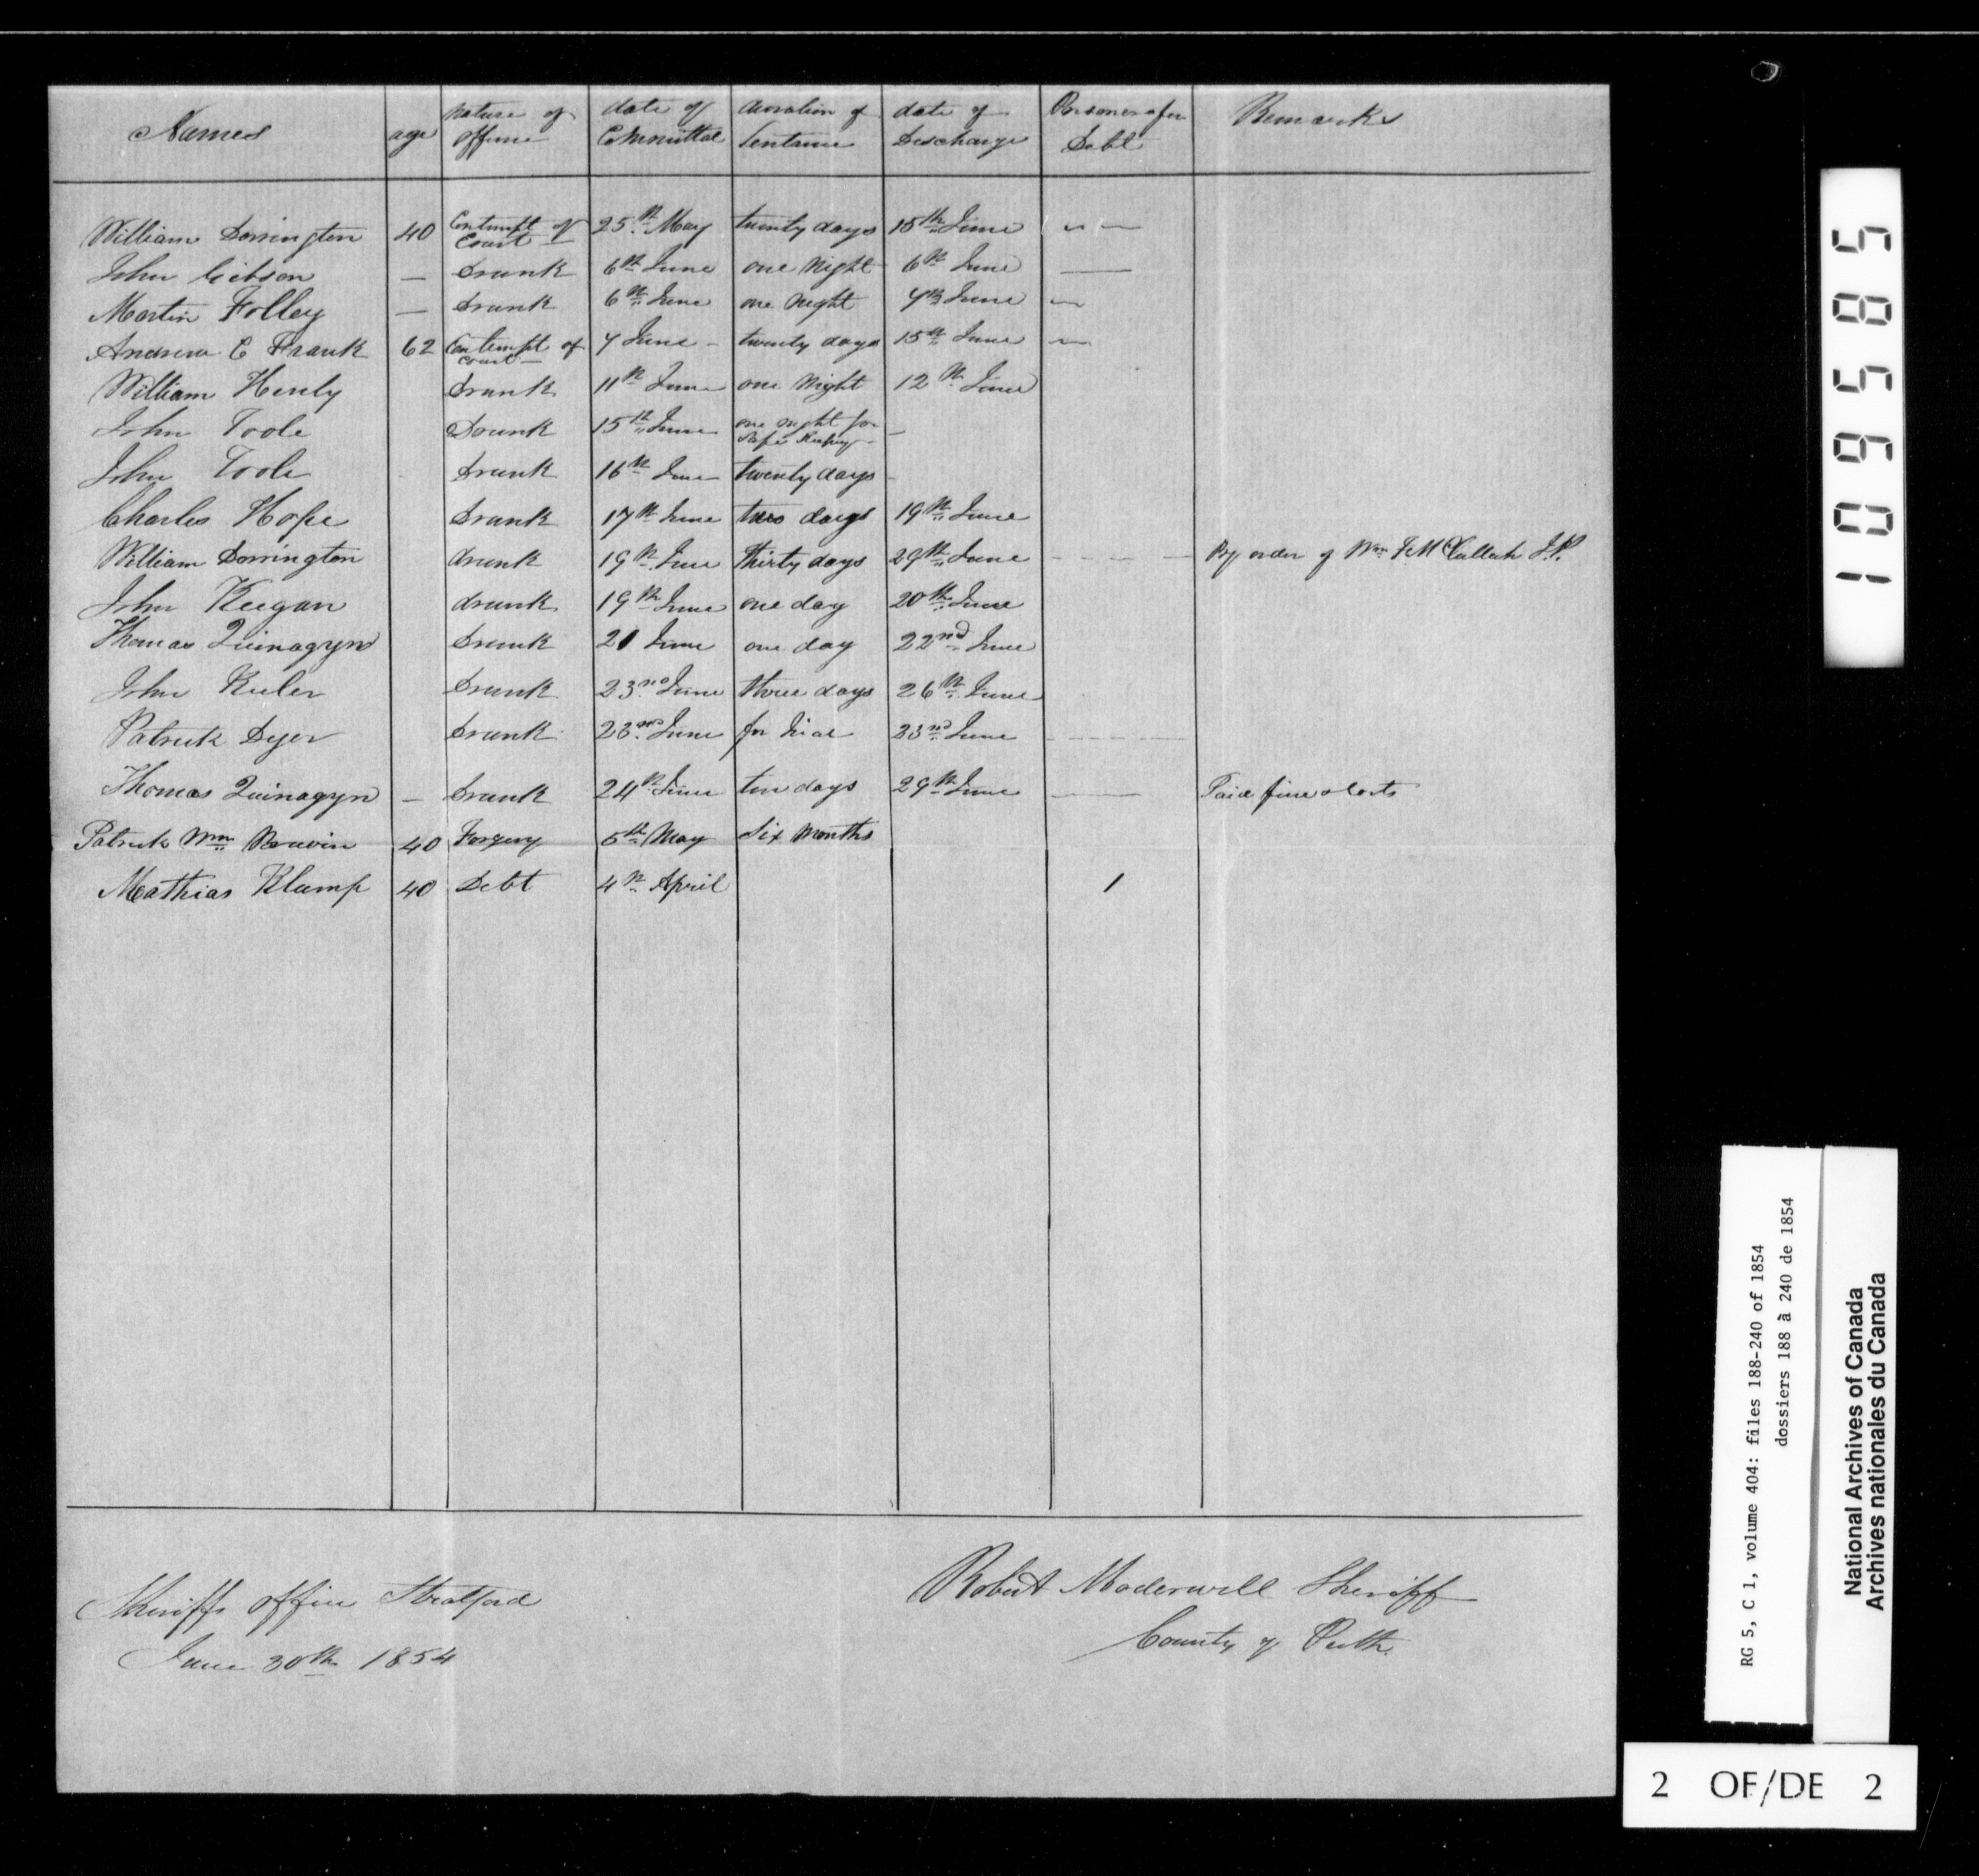 Names age nature of offence date of Committal duration of Sentence date of Discharge Prisoners for Debt Remarks
William Dorrington 40 Contempt of Court 25th May twenty days 15th June
John Gibson — drunk 6th June one night 6th June —
Martin Folley — drunk 6th June one night 7th June —
Andrew C Frank 62 Contempt of Court 7 June twenty days 15th June —
William Henly drunk 11th June one night 12th June
John Toole Drunk 15th June one night for Safe Keeping —
John Toole drunk 16th June twenty days -
Charles Hope drunk 17th June two days 19th June
William Dorrington drunk 19th June Thirty days 29th June By order of Wm F McCulloch J.P.
John Keegan drunk 19th June one day 20th June
Thomas Quinagyn drunk 21 June one day 22nd June
John Keeler drunk 23rd June three days 26th June
Patrick Dyer drunk 23rd June for trial 23rd June
Thomas Quinagyn — drunk 24th June ten days 29th June — Paid fine & Costs
Patrick Wm 40 Forgery 5th May Six Months
Mathias Klump 40 Debt 4th April 1
Sheriffs office Stratford
June 30th 1854
Robert Moderwell Sheriff
County of Perth
1095585
RG 5, C 1, volume 404: files 188-240 of 1854
dossiers 188 à 240 de 1854
National Archives of Canada
Archives nationales du Canada
2 OF/DE 2